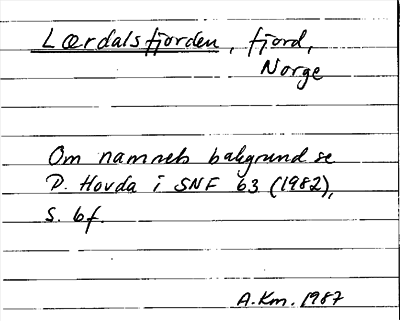 Lærdalsfjorden, fjord,
Norge
Om namnets bakgrund se
P. Hovda i SNF 63 (1982),
s. 6f.
A.Km. 1987